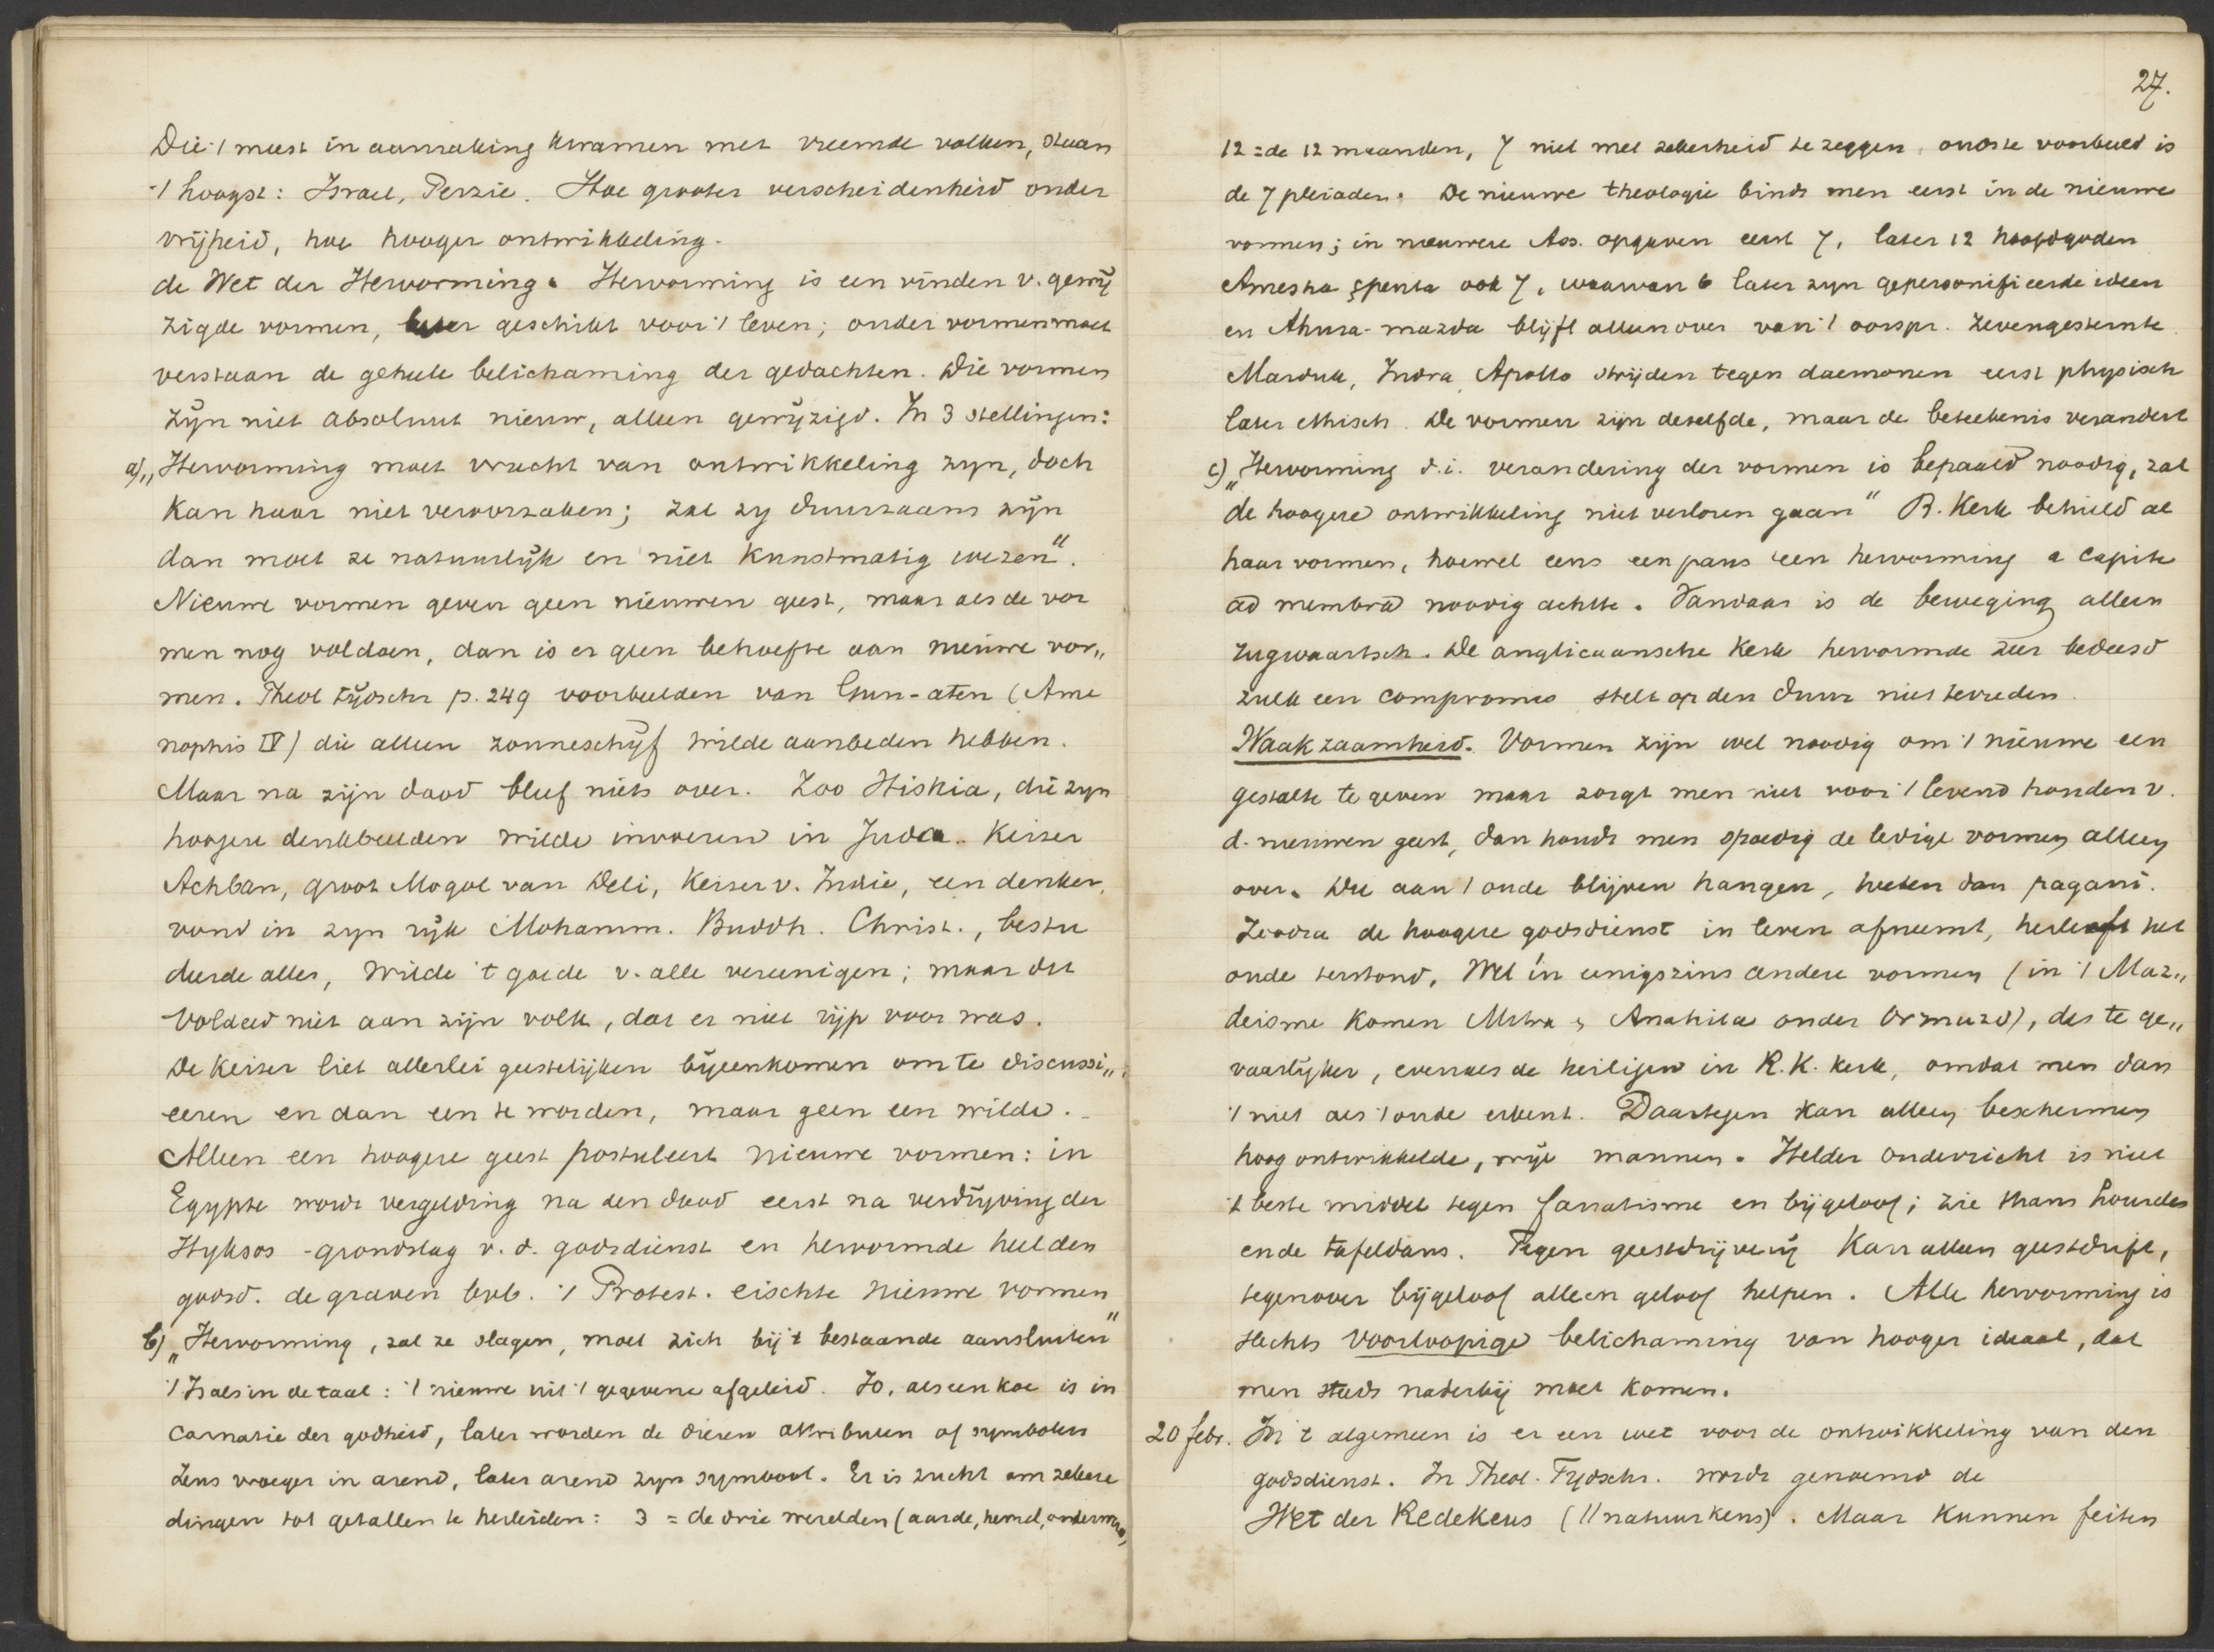 Die 't meest in aanraking kwamen met vreemde volken, staan
't hoogst: Israel, Perzie. Hoe grooter verscheidenheid onder
vrijheid, hoe hooger ontwikkeling.
de Wet der Hervorming. Hervorming is een vinden v. gewij
zigde vormen, beter geschikt voor 't leven; onder vormen moet
verstaan de geheele belichaming der gedachten. Die vormen
zijn niet absoluut nieuw, alleen gewijzigd. In 3 stellingen:
a) „Hervorming moet vrucht van ontwikkeling zyn, doch
kan haar niet veroorzaken; zal zy duurzaam zijn
dan moet ze natuurlijk en niet kunstmatig wezen".
Nieuwe vormen geven geen nieuwen geest, maar als de vor
men nog voldoen, dan is er geen behoefte aan nieuwe vor„
men. Theol tijdschr p. 249 voorbeelden van Chun-aten (Ame
nophis IV) die alleen zonneschijf wilde aanbeden hebben.
Maar na zijn dood bleef niets over. Zoo Hiskia, die zyn
hoogere denkbeelden wilde invoeren in Juda. Keizer
Achban, groot Mogol van Deli, Keizer v. Indie, een denker,
vond in zyn rijk Mohamm. Buddh. Christ., bestu
deerde alles, wilde 't goede v. alle vereenigen; maar dit
voldeed niet aan zijn volk, dat er niet rijp voor was.
De Keizer liet allerlei geestelijken bijeenkomen om te discussi„
eeren en dan een te worden, maar geen een wilde.
Alleen een hoogere geest postuleert nieuwe vormen: in
Egypte wordt vergelding na den dood eerst na verdrijving der
Hyksos - grondslag v. d. godsdienst en hervormde heel den
godsd. de graven bvb. 't Protest. eischte nieuwe vormen
b) „Hervorming, zal ze slagen, moet zich bij 't bestaande aansluiten"
't Is als in de taal: 't nieuwe uit 't gegevene afgeleid. Io, als een koe is in
carnatie der godheid, later worden de dieren attributen of symbolen
Zeus vroeger in arend, later arend zyn symbool. Er is zucht om zekere
dingen tot getallen te herleiden: 3 = de drie werelden (aarde, hemel, onderwereld)
27.
12 = de 12 maanden, 7 niet met zekerheid te zeggen, oudste voorbeeld is
de 7 pleiaden. De nieuwe theologie bindt men eerst in de nieuwe
vormen; in nieuwere Ass. opgaven eerst 7, later 12 hoofdgoden
Amesha spenta ook 7, waarvan 6 later zyn gepersonifieerde ideen
en Ahura-mazda blijft alleen over van 't oorspr. zevengesternte
Marduk, Indra, Apollo strijden tegen daemonen eerst physisch
later ethisch. De vormen zijn dezelfde, maar de beteekenis verandert
c) „Hervorming d.i. verandering der vormen is bepaald noodig, zal
de hoogere ontwikkeling niet verloren gaan" R. Kerk behield al
haar vormen, hoewel eens een paus een hervorming a capite
ad membra noodig achtte. Vandaar is de beweging alleen
rugwaartsch. De anglicaansche Kerk hervormde zeer bedeesd
zulk een compromis stelt op den duur niet tevreden.
Waakzaamheid. Vormen zijn wel noodig om 't nieuwe een
gestalte te geven maar zorgt men niet voor 't levend houden v.
d. nieuwen geest, dan houdt men spoedig de ledige vormen alleen
over. Die aan 't oude blijven hangen, heeten dan pagani.
Zoodra de hoogere godsdienst in leven afneemt, herleeft het
oude terstond, wel in eenigszins andere vormen (in 't Maz„
deisme komen Mithra & Anahita onder Ormuzd), des te ge„
vaarlijker, evenals de heiligen in R.K. kerk, omdat men dan
't niet als 't oude erkent. Daartegen kan alleen beschermen
hoog ontwikkelde, vrije mannen. Helder onderricht is niet
't beste middel tegen fanatisme en bijgeloof; zie thans Lourdes
en de tafeldans. Tegen geestdrijverij kan alleen geestdrift,
tegenover bijgeloof alleen geloof helpen. Alle hervorming is
slechts voorloopige belichaming van hooger ideaal, dat
men steeds naderbij moet komen.
20 febr. In 't algemeen is er een wet voor de ontwikkeling van den
godsdienst. In Theol. Tydschr. wordt genoemd de
Wet der Redekeus (// natuurkeus). Maar kunnen feiten